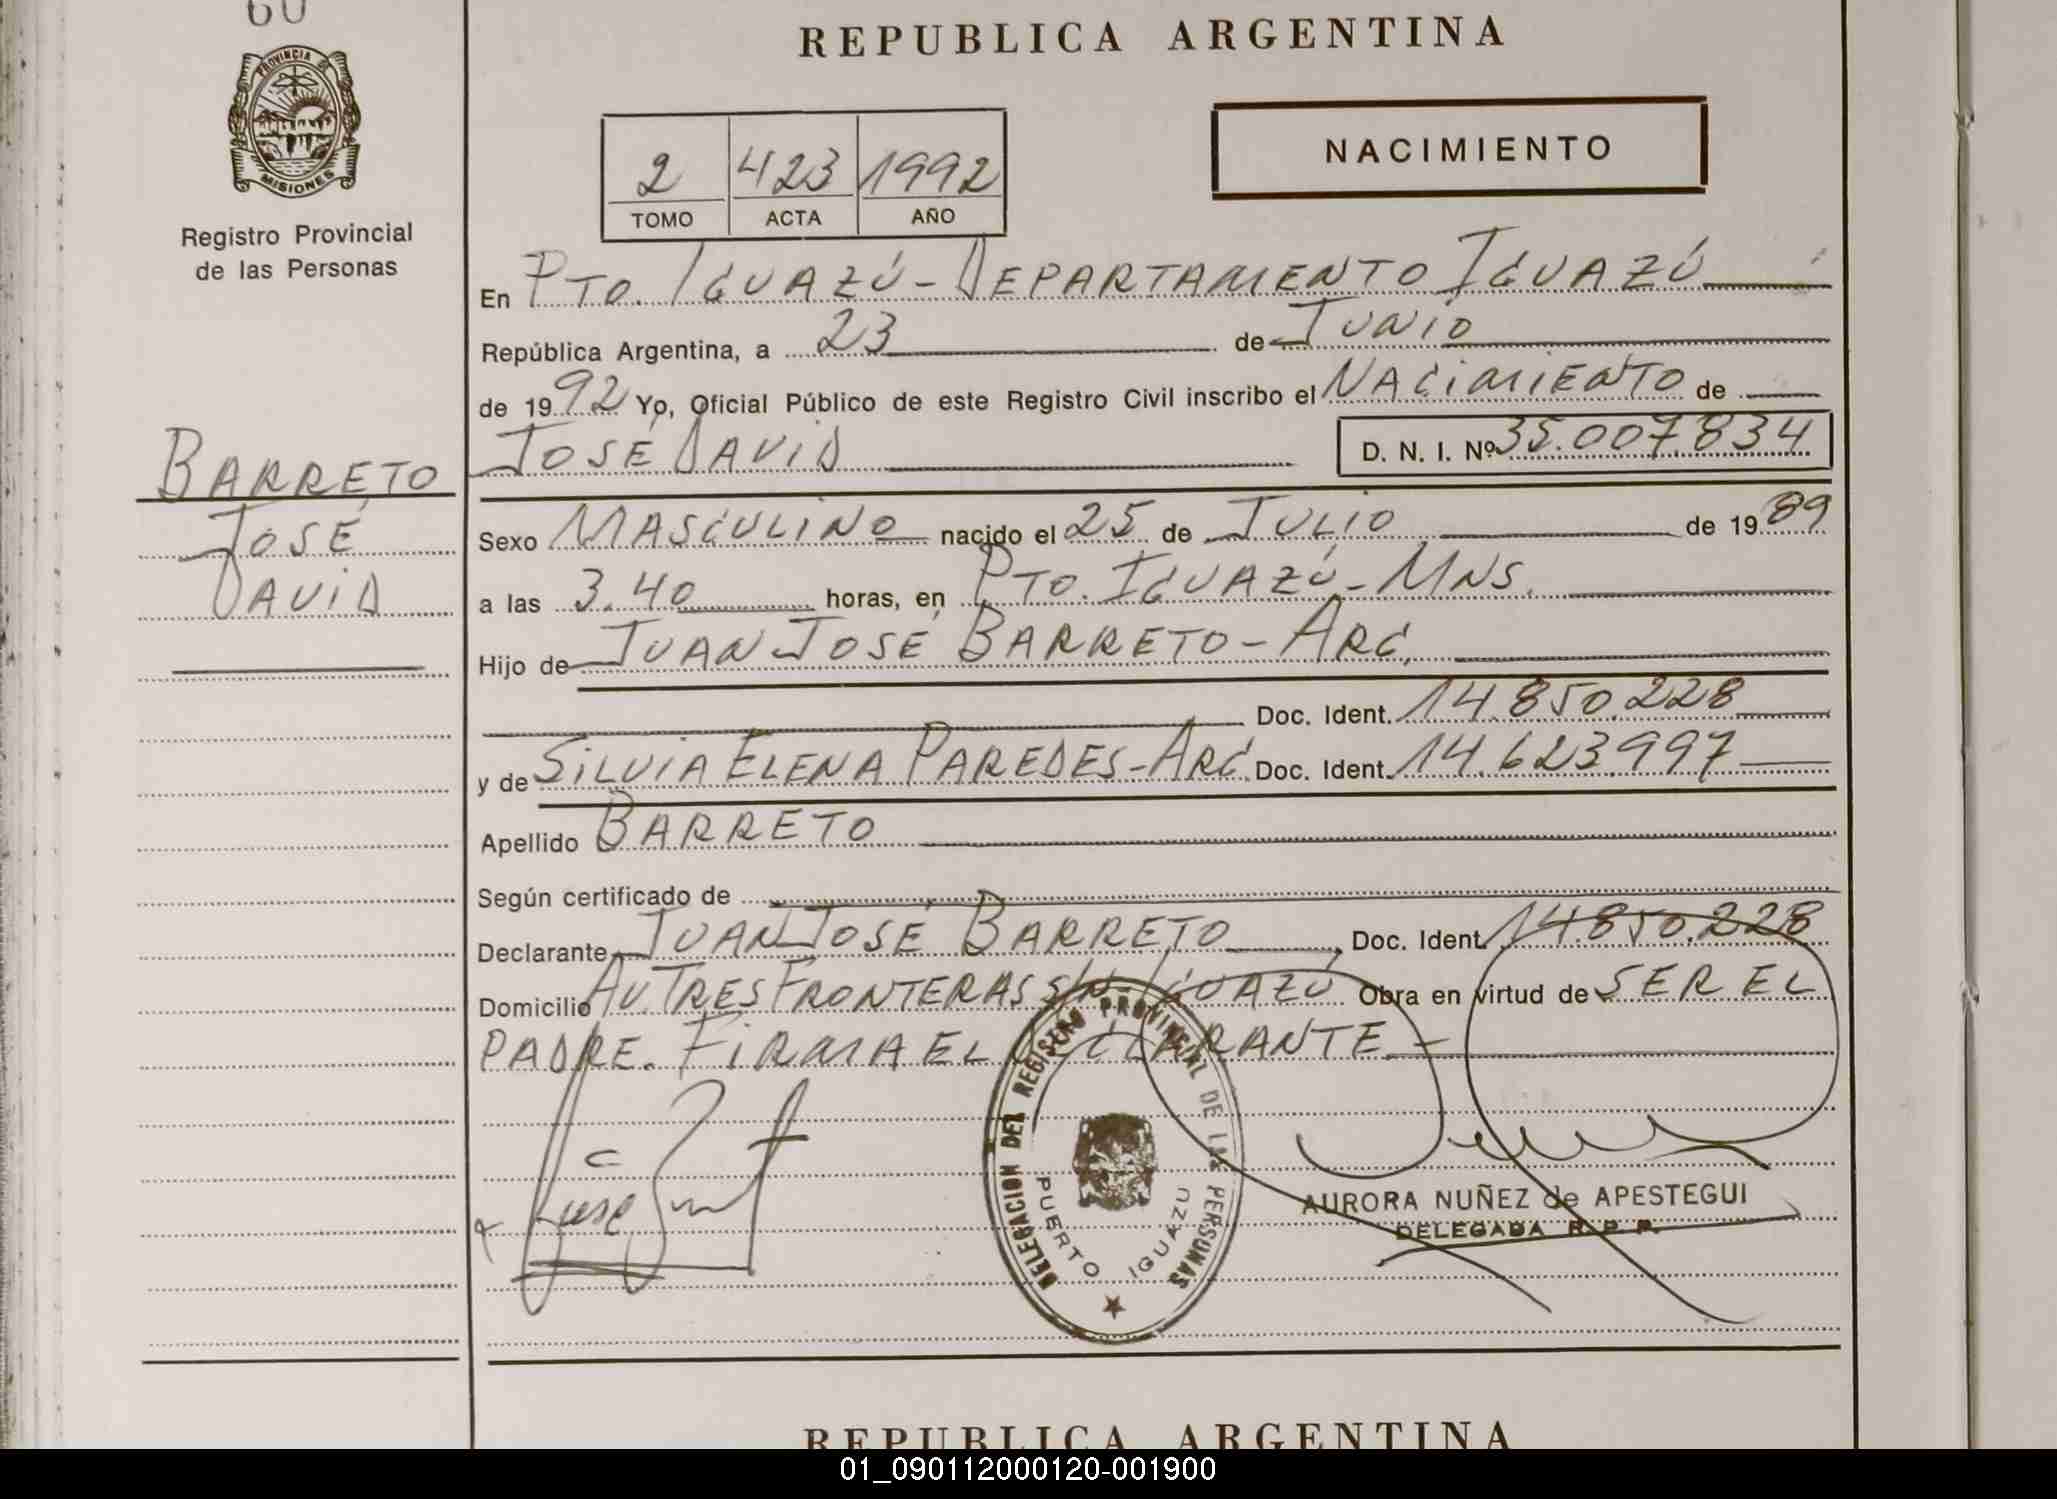 60
PROVINCIA DE
MISIONES
Registro Provincial
de las Personas
BARRETO
JOSÉ
DAVID
REPUBLICA ARGENTINA
2 423 1992
TOMO ACTA AÑO
NACIMIENTO
En PTO. IGUAZÚ - DEPARTAMENTO IGUAZÚ
República Argentina, a 23 de JUNIO
de 1992 Yo, Oficial Público de este Registro Civil inscribo el NACIMIENTO de
JOSÉ DAVID D. N. I. Nº 35.007.834
Sexo MASCULINO nacido el 25 de JULIO de 1989
a las 3.40 horas, en PTO. IGUAZÚ - MNS.
Hijo de JUAN JOSÉ BARRETO - ARG.
Doc. Ident. 14.850.228
y de SILVIA ELENA PAREDES - ARG. Doc. Ident. 14.623.997
Apellido BARRETO
Según certificado de
Declarante JUAN JOSÉ BARRETO, Doc. Ident. 14.850.228
Domicilio AV. TRES FRONTERAS S/N - IGUAZÚ Obra en virtud de SER EL
PADRE. FIRMA EL DECLARANTE -
DELEGACION DEL REGISTRO PROVINCIAL DE LAS PERSONAS
PUERTO IGUAZU
AURORA NUÑEZ de APESTEGUI
DELEGADA R. P. P.
REPUBLICA ARGENTINA
01_090112000120-001900